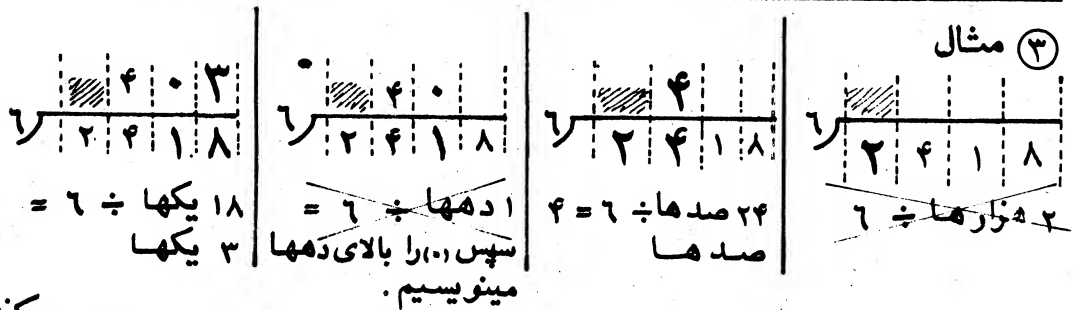 ۳ مثال
۶ ۲ ۴ ۱ ۸
۲ هزارها ÷ ۶
۴
۶ ۲ ۴ ۱ ۸
۲۴ صدها ÷ ۶ = ۴
صدها
۴ ۰
۶ ۲ ۴ ۱ ۸
۱ دهها ÷ ۶ =
سپس (۰) را بالای دهها
مینویسیم.
۴ ۰ ۳
۶ ۲ ۴ ۱ ۸
۱۸ یکها ÷ ۶ =
۳ یکها